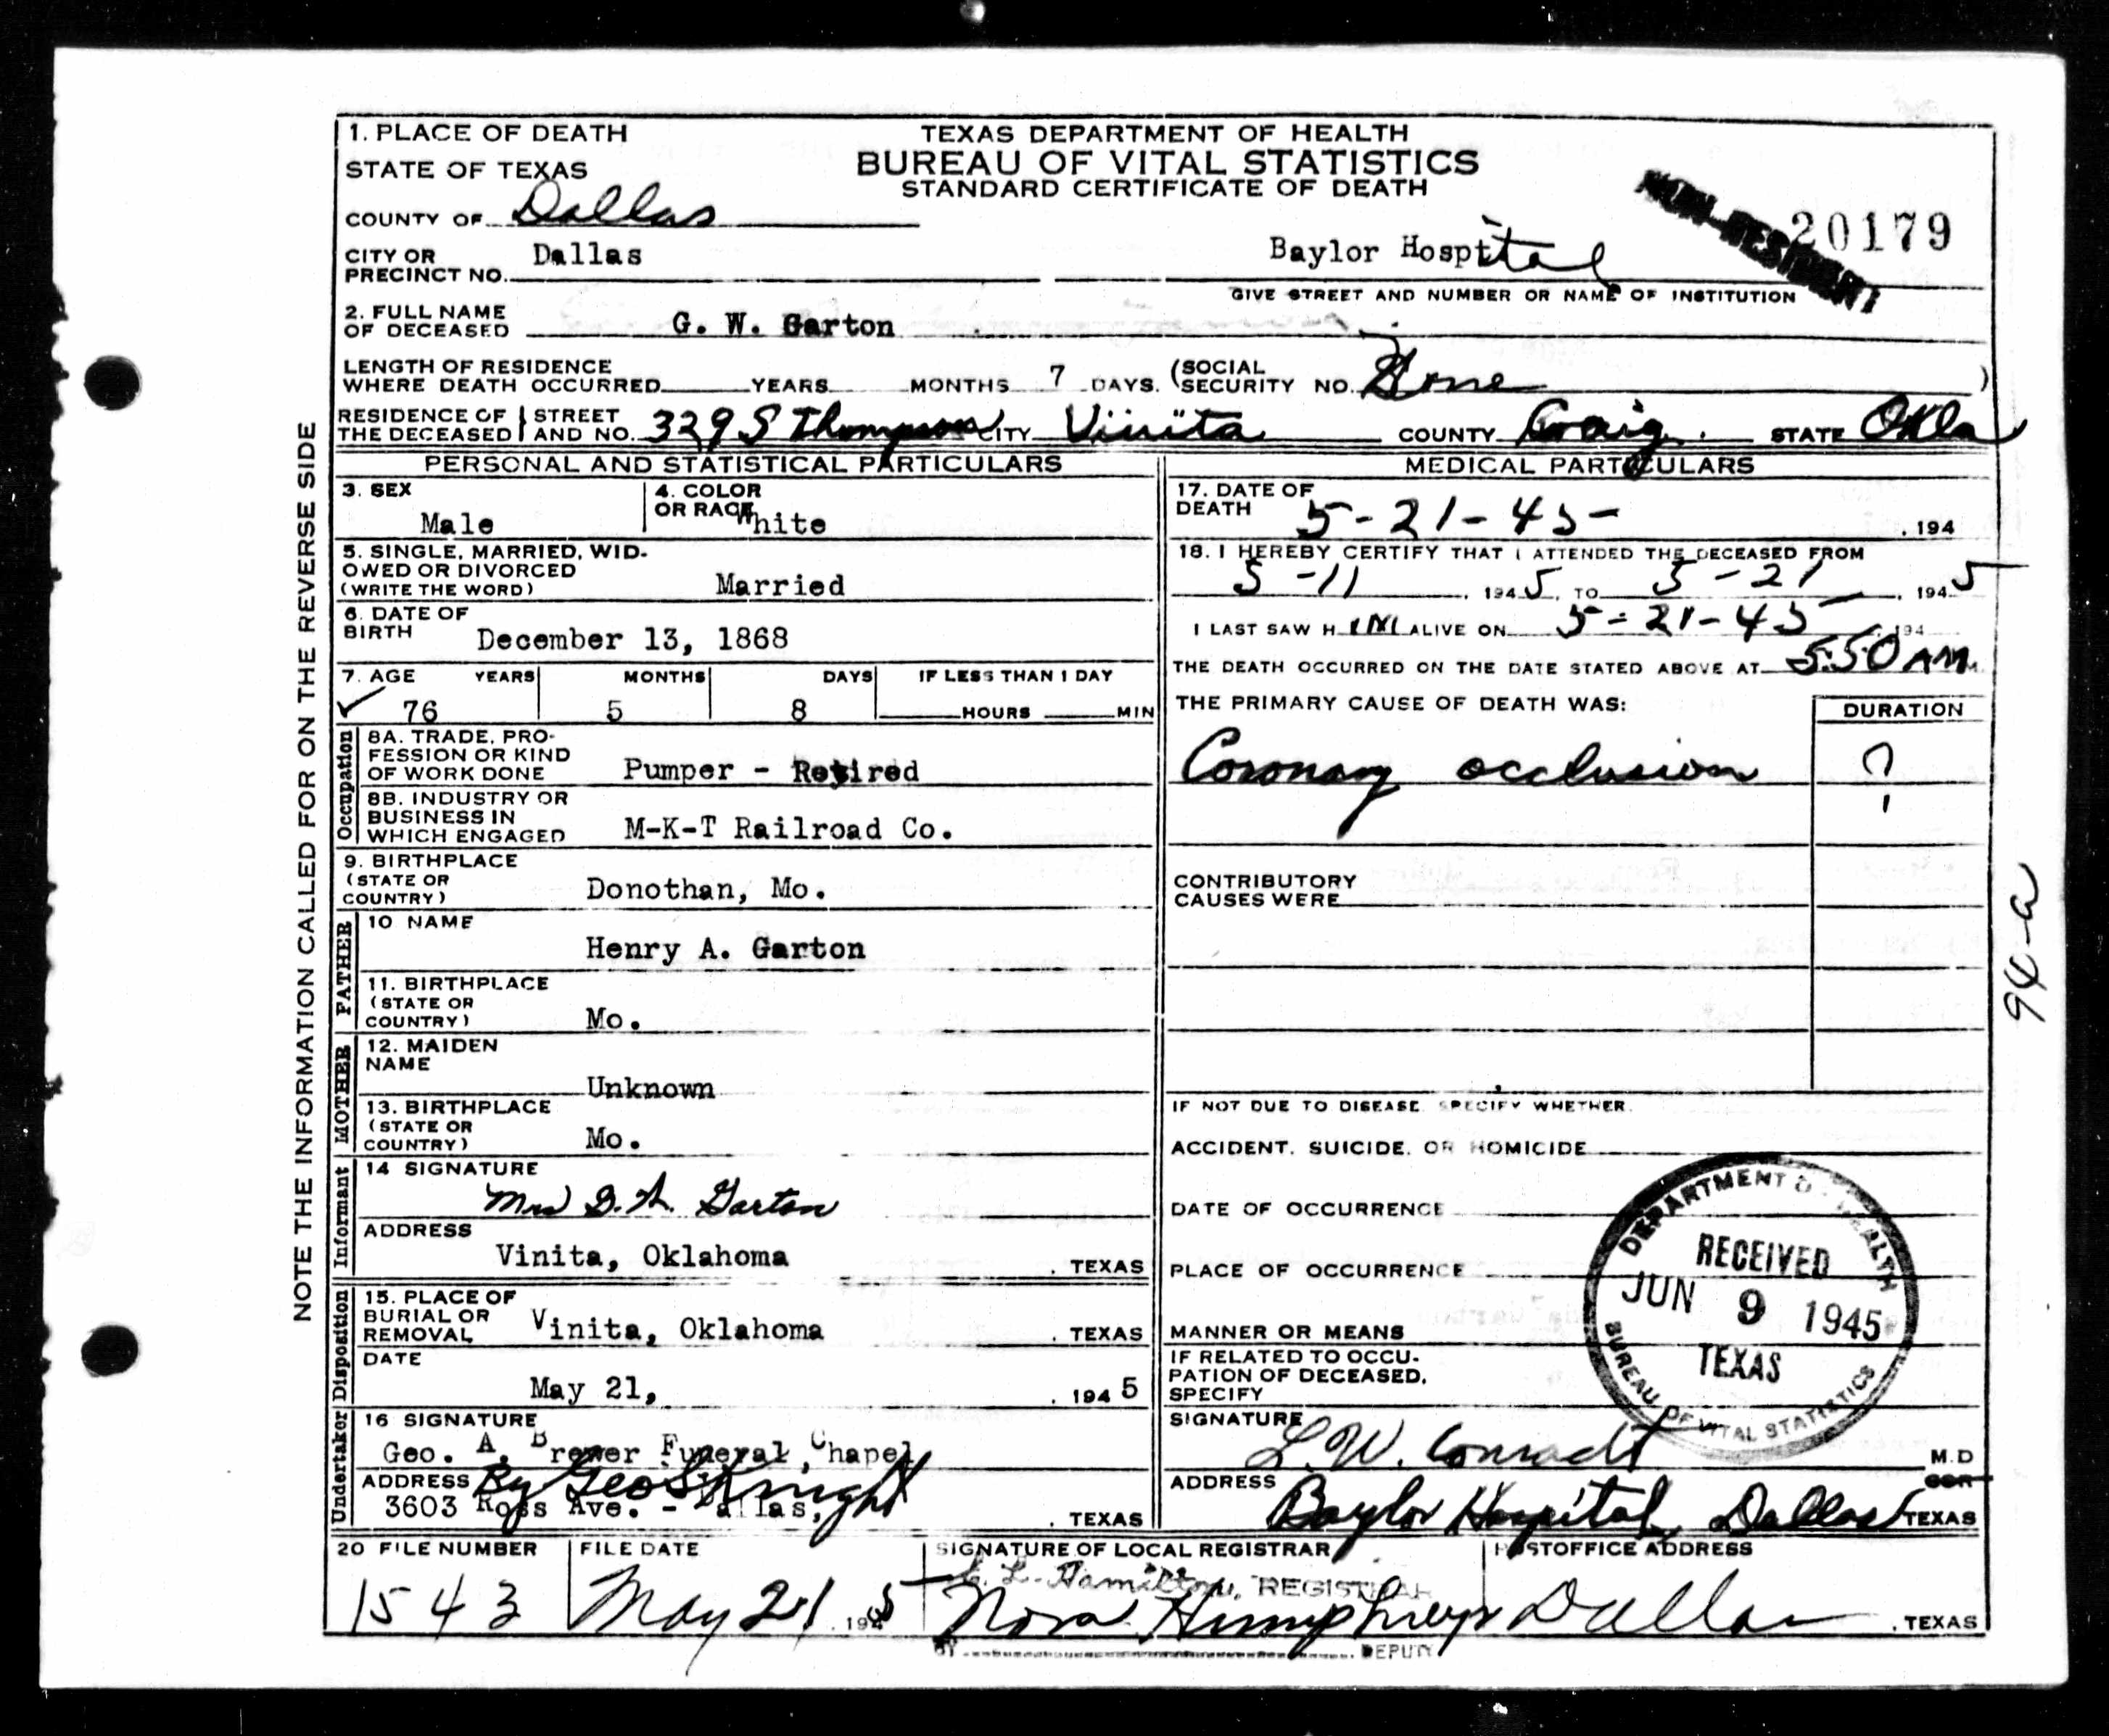 1. PLACE OF DEATH
STATE OF TEXAS
COUNTY OF Dallas
CITY OR PRECINCT NO. Dallas
TEXAS DEPARTMENT OF HEALTH
BUREAU OF VITAL STATISTICS
STANDARD CERTIFICATE OF DEATH
NON-RESIDENT
20179
Baylor Hosptital
GIVE STREET AND NUMBER OR NAME OF INSTITUTION
2. FULL NAME OF DECEASED G. W. Garton
LENGTH OF RESIDENCE WHERE DEATH OCCURRED YEARS MONTHS 7 DAYS. (SOCIAL SECURITY NO. None )
RESIDENCE OF THE DECEASED STREET AND NO. 329 S Thompson CITY Vinita COUNTY Craig STATE Okla
NOTE THE INFORMATION CALLED FOR ON THE REVERSE SIDE
PERSONAL AND STATISTICAL PARTICULARS
3. SEX Male
4. COLOR OR RACE White
5. SINGLE, MARRIED, WIDOWED OR DIVORCED (WRITE THE WORD) Married
6. DATE OF BIRTH December 13, 1868
7. AGE YEARS MONTHS DAYS IF LESS THAN 1 DAY
76 5 8 HOURS MIN
Occupation
8A. TRADE, PROFESSION OR KIND OF WORK DONE Pumper - Retired
8B. INDUSTRY OR BUSINESS IN WHICH ENGAGED M-K-T Railroad Co.
9. BIRTHPLACE (STATE OR COUNTRY) Donothan, Mo.
FATHER
10 NAME Henry A. Garton
11. BIRTHPLACE (STATE OR COUNTRY) Mo.
MOTHER
12. MAIDEN NAME Unknown
13. BIRTHPLACE (STATE OR COUNTRY) Mo.
Informant
14 SIGNATURE Mrs G. W. Garton
ADDRESS Vinita, Oklahoma , TEXAS
Disposition
15. PLACE OF BURIAL OR REMOVAL Vinita, Oklahoma , TEXAS
DATE May 21, , 1945
Undertaker
16 SIGNATURE Geo. A. Brewer Funeral Chapel
By Geo S Knight
ADDRESS 3603 Ross Ave. - Dallas, , TEXAS
MEDICAL PARTICULARS
17. DATE OF DEATH 5-21-45 , 194
18. I HEREBY CERTIFY THAT I ATTENDED THE DECEASED FROM
5-11 , 1945, TO 5-21 , 1945
I LAST SAW HIM ALIVE ON 5-21-45 , 194
THE DEATH OCCURRED ON THE DATE STATED ABOVE AT 5:50 AM M.
THE PRIMARY CAUSE OF DEATH WAS: DURATION
Coronary occlusion ?
CONTRIBUTORY CAUSES WERE
94-a
IF NOT DUE TO DISEASE, SPECIFY WHETHER:
ACCIDENT, SUICIDE, OR HOMICIDE
DATE OF OCCURRENCE
PLACE OF OCCURRENCE
MANNER OR MEANS
IF RELATED TO OCCUPATION OF DECEASED, SPECIFY
DEPARTMENT OF HEALTH
RECEIVED
JUN 9 1945
TEXAS
BUREAU OF VITAL STATISTICS
SIGNATURE L. W. Conradt M.D
ADDRESS Baylor Hospital, Dallas TEXAS
20 FILE NUMBER 1543
FILE DATE May 21, 1945
SIGNATURE OF LOCAL REGISTRAR
Hamilton, REGISTRAR
Nora Humphreys
BY DEPUTY
POSTOFFICE ADDRESS Dallas , TEXAS